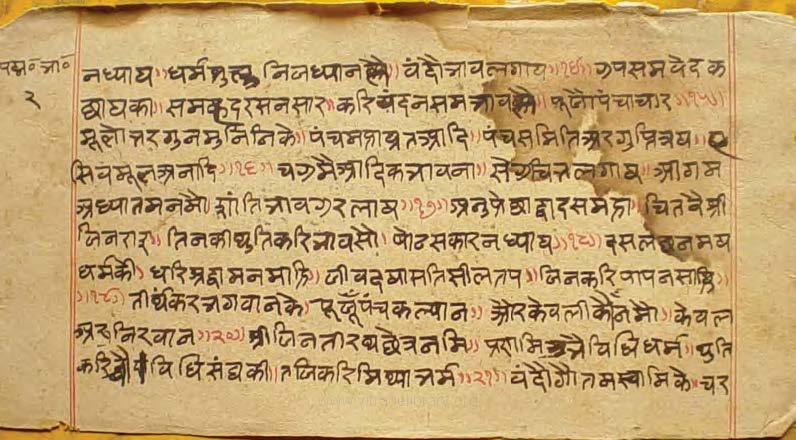 पद्म॰ भा॰
२
नध्याय॥ धर्मसुक्ल निजध्यानकौ॥ वंदौ भावलगाय॥१४॥ उपसमवेदक
छायका॥ समकदरसनसार॥ करि वंदन समभावसौ॥ पूजौ पंचाचार॥१५॥
मूलोत्तरगुनमुनिनिके॥ पंचमहाव्रतआदि॥ पंचसमिति अरगुप्तित्रय॥ ए
सिवमूलअनादि॥१६॥ चग्रमैआदिकभावना॥ सेऊंचितलगाय॥ आगम
अध्यातमनमौ॥ शांतिभावउरलाय॥१७॥ अनुप्रेछा द्वादसमहा॥ चितवै श्री
जिनराइ॥ तिनकी थुतिकरि भावसौ॥ षोडसकारनध्याय॥१८॥ दसलछनमय
धर्मकी॥ धरि श्रद्धा मनमांहि॥ जीवदयासतिसीलतप॥ जिनकरिपापनसांहि॥
॥१९॥ तीर्थंकरभगवानके॥ पूजूं पंचकल्यान॥ और केवली कौं नमौ॥ केवल
अरनिरवान॥२०॥ श्रीजिनतीरथछेत्रनमि॥ प्रणमि उभैविधिधर्म॥ थुति
करि चौविधिसंघकी॥ तजिकरि मिथ्याभर्म॥२१॥ वंदौ गौतमस्वामिके॥ चर